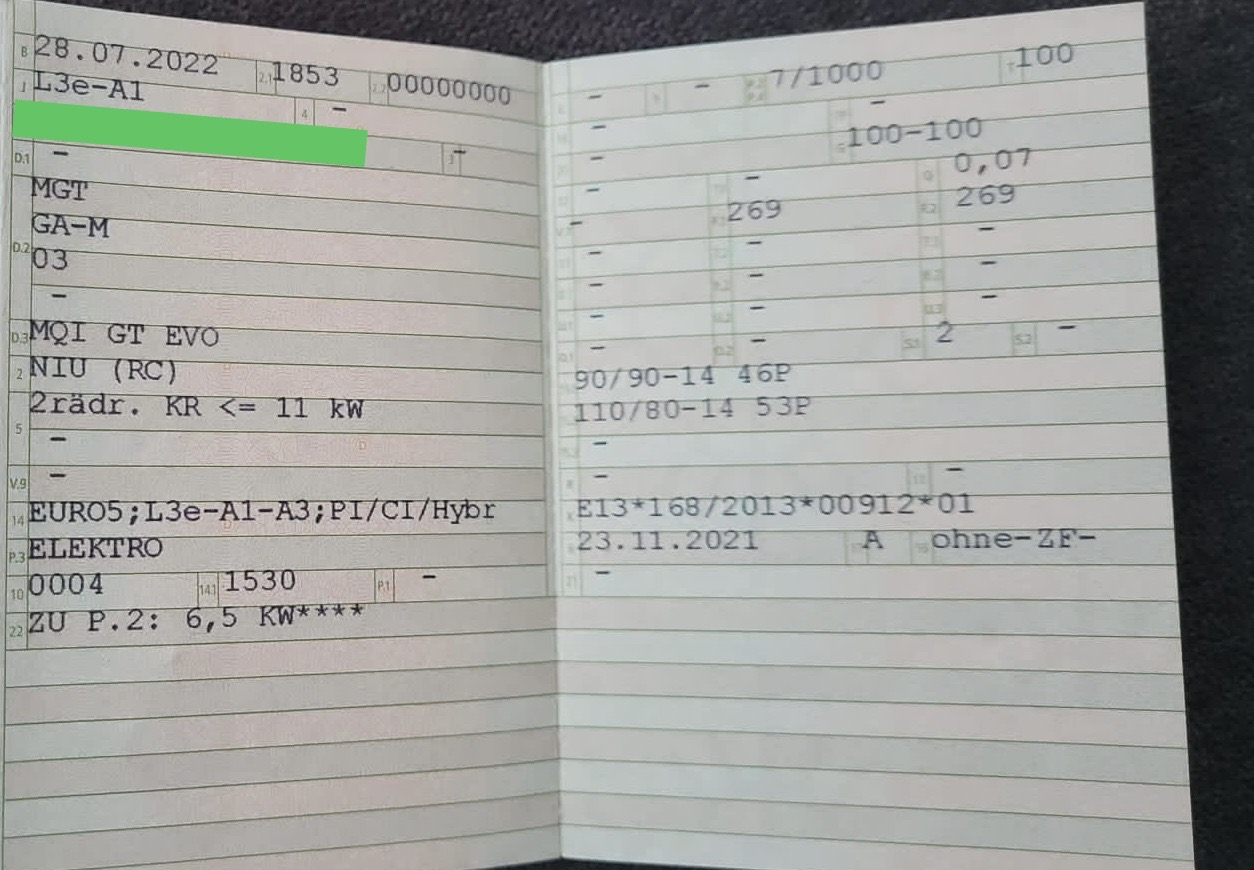 B 28.07.2022 2.1 1853 2.2 00000000
J L3e-A1 4 -
3 -
D.1 -
MGT
D.2 GA-M
03
-
D.3 MQI GT EVO
2 NIU (RC)
5 2rädr. KR <= 11 kW
-
V.9 -
14 EURO5;L3e-A1-A3;PI/CI/Hybr
P.3 ELEKTRO
10 0004 14.1 1530 P.1 -
22 ZU P.2: 6,5 KW****
- - 7/1000 T 100
- -
- 100-100
- - Q 0,07
- 269 F.2 269
- - -
- - -
- - -
- - S.1 2 S.2 -
90/90-14 46P
110/80-14 53P
-
- -
K E13*168/2013*00912*01
23.11.2021 A ohne-ZF-
21 -